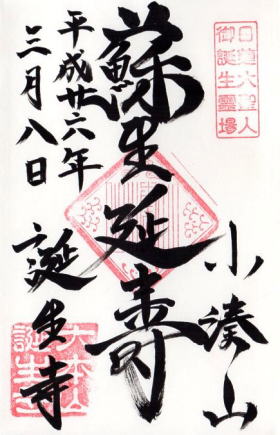 日蓮大聖人
御誕生霊場
小湊山
蘇生延寿
平成廿六年
三月八日
誕生寺